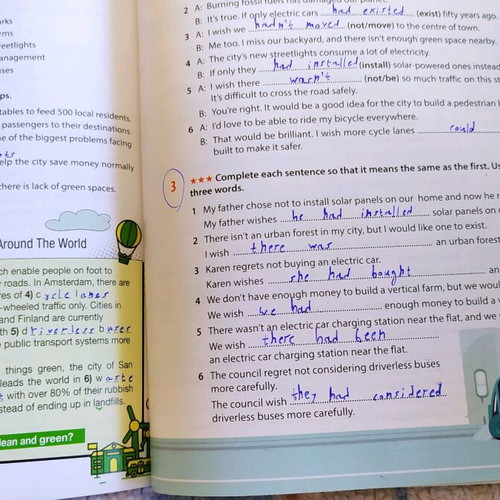 arks
rms
eetlights
anagement
uses
ps.
tables to feed 500 local residents.
passengers to their destinations.
e of the biggest problems facing
elp the city save money normally
here is lack of green spaces.
Around The World
ch enable people on foot to
roads. In Amsterdam, there are
res of 4) cycle lanes
-wheeled traffic only. Cities in
and Finland are currently
th 5) driverless buses
public transport systems more
things green, the city of San
leads the world in 6) waste
t with over 80% of their rubbish
stead of ending up in landfills.
lean and green?
2 A: Burning fossil fuels has damaged our planet.
B: It's true. If only electric cars had existed (exist) fifty years ago.
3 A: I wish we hadn't moved (not/move) to the centre of town.
B: Me too. I miss our backyard, and there isn't enough green space nearby.
4 A: The city's new streetlights consume a lot of electricity.
B: If only they had installed (install) solar-powered ones instead
5 A: I wish there wasn't (not/be) so much traffic on this st
It's difficult to cross the road safely.
B: You're right. It would be a good idea for the city to build a pedestrian
6 A: I'd love to be able to ride my bicycle everywhere.
B: That would be brilliant. I wish more cycle lanes could
built to make it safer.
3 ★★★ Complete each sentence so that it means the same as the first. Us
three words.
1 My father chose not to install solar panels on our home and now he r
My father wishes he had installed solar panels on
2 There isn't an urban forest in my city, but I would like one to exist.
I wish there was an urban fores
3 Karen regrets not buying an electric car.
Karen wishes she had bought an
4 We don't have enough money to build a vertical farm, but we woul
We wish we had enough money to build a v
5 There wasn't an electric car charging station near the flat, and we
We wish there had been
an electric car charging station near the flat.
6 The council regret not considering driverless buses
more carefully.
The council wish they had considered
driverless buses more carefully.